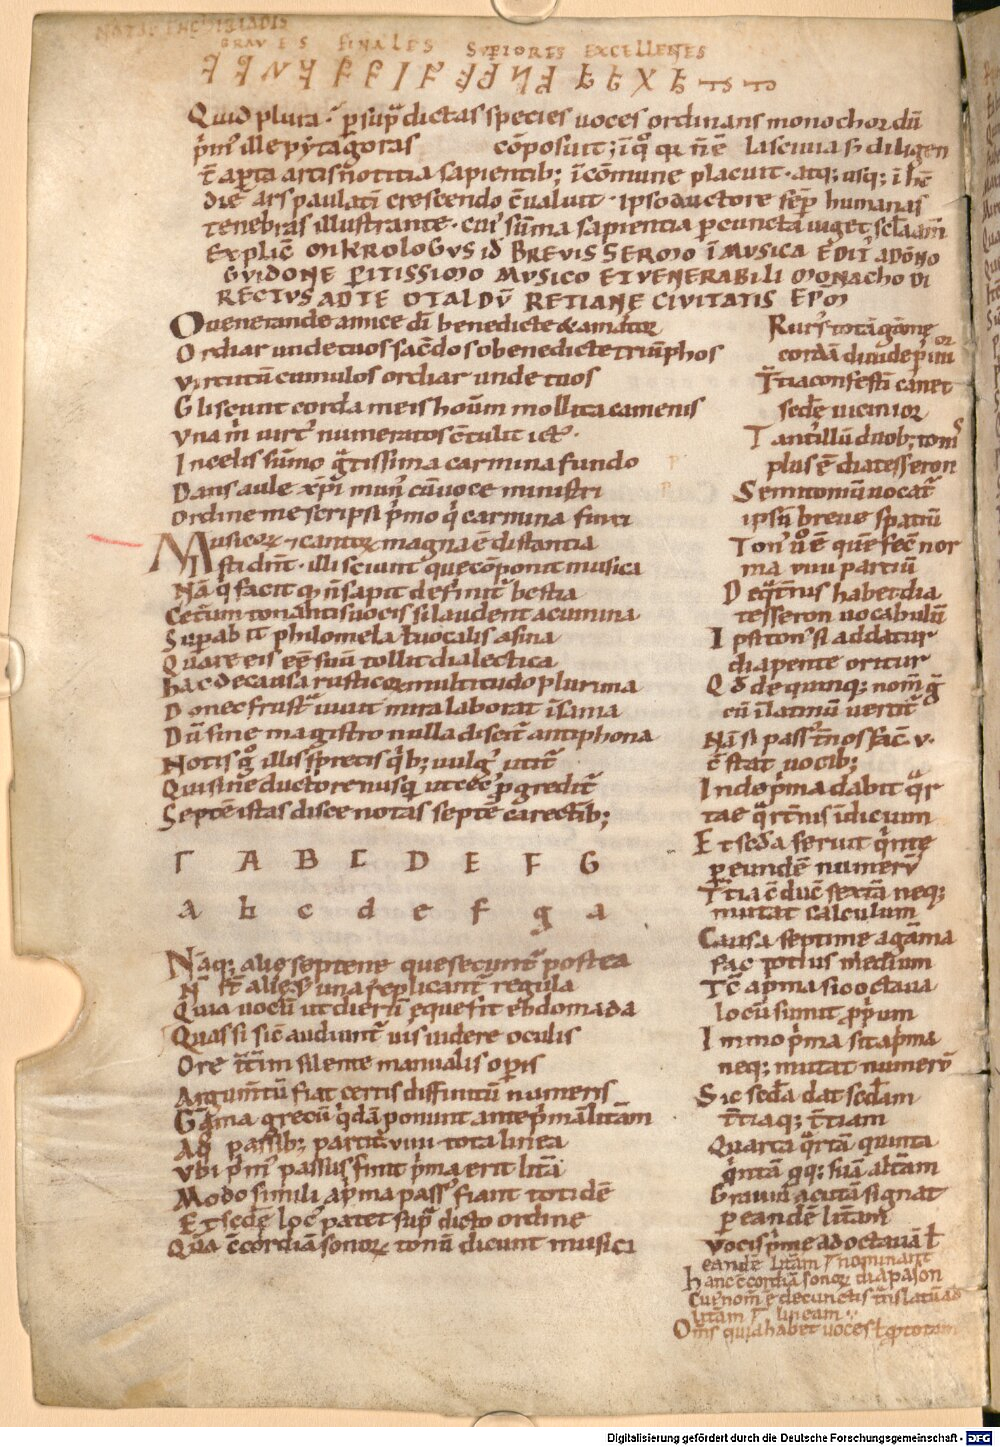 NOTAE ENCHIRIADIS
GRAVES FINALES SUPIORES EXCELLENTES
Quid plura. p sup dictas species uoces ordinans monochordū
pm' ille pytagoras cōposuit; ī q q n ē lasciuia s; diligen
t apta artis notitia sapientib; ī cōmune placuit. atq; usq; ī h
diē ars paulati crescendo cualuit. ipso doctore sep humanas
tenebras illustrante. cui' suma sapientia p cuncta uiget secla am
Explic MIKROLOGVS id BREVIS SERMO I MVSICA EDIT A DONO
GVIDONE PITISSIMO MVSICO ET VENERABILI MONACHO DI
RECTVS AD TE OTALDV RETIANE CIVITATIS EPM
O uenerande amice di benedicte & amator
Ordiar unde tuos sacdos o benedicte triuphos
Virtutū cumulos ordiar unde tuos
Gliscunt corda meis hoūm mollita camenis
Vna m uirt' numeratos ctulit ict'.
In celis sūmo gtissima carmina fundo
Dans aule xpi mun cū uoce ministri
Ordine me scripsi pmo q carmina finxi
Musicor & cantor magna ē distantia
Isti dnt. illi sciunt que cōponit musica
Nā q facit qn sapit definit bestia
Ceterum tonantis uocis si laudent acumina
Supabit philomela t uocalis asina
Quare eis eē suū tollit dialectica
Hac de causa rusticor multitudo plurima
Donec frust uiuit mira laborat īsania
Dū sine magistro nulla discit antiphona
Notis g illis spretis qb; uulg' utit
Qui sine ductore nusq ut cec' pgredit
Septē istas disce notas septē carectib;
Γ A B C D E F G
a b c d e f g a
Nāq; alie septene que secunt postea
N st alie s; una replicant regula
Quia uocū ut dierū eque fit ebdomada
Quas si sic audiunt uis uidere oculis
Ore ttim silente manualis opis
Argumtū fiat certis diffinitū numeris
Gāma grecū qdā ponunt ante pmā litam
Ad passib; partit uiiii tota linea
Vbi pm' passus finit pma erit lita
Modo simili a pma pass' fiant totidē
Et secdē loc' patet sup dicto ordine
Quā ccordiā sonor tonū dicunt musici
Rurs' totā gāme
cordā diuide p iiii
Ttia confesti canet
scdē uicinior
Tantillū duob; tonis
plus ē diatesseron
Semitoniū uocat
ipsū breue spatiū
Ton' u ē quē fec nor
ma uiiii partiū
De qt'nis habet dia
tesseron uocabulū
Ipsi ton' si addatur
diapente oritur
Qd de quinq; nom g
cū ī latinū uertit
Nā si pass' t'nos fac v.
c stat uocib;
Inde pma dabit qr
tae qrt'nis īdicium
Et secda seruit qnte
p eundē numerū
Ttia c duc sextā neq;
mutat calculum
Causa septime a gāma
fac totius medium
Tc a pma sic octaua
locū sumit pprium
Immo pma sit a pma
neq; mutat numerū
Sic secda dat secdam
ttiaq; ttiam
Quarta qrtā quinta
qntā qq; suā altam
Grauiū acutā signat
p eandē litam
Vocis pme ad octauā t
eandē litam Γ nominant
Hanc ccordiā sonor diapason
Cui' nom ē de cunctis translatū ad
litam Γ lineam.
Oms quia habet uoces t p totam
Digitalisierung gefördert durch die Deutsche Forschungsgemeinschaft - DFG